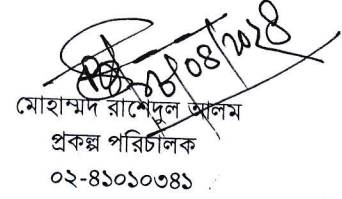 ০৮/০৪/২০২৪
মোহাম্মদ রাশেদুল আলম
প্রকল্প পরিচালক
০২-৪১০১০৩৪১